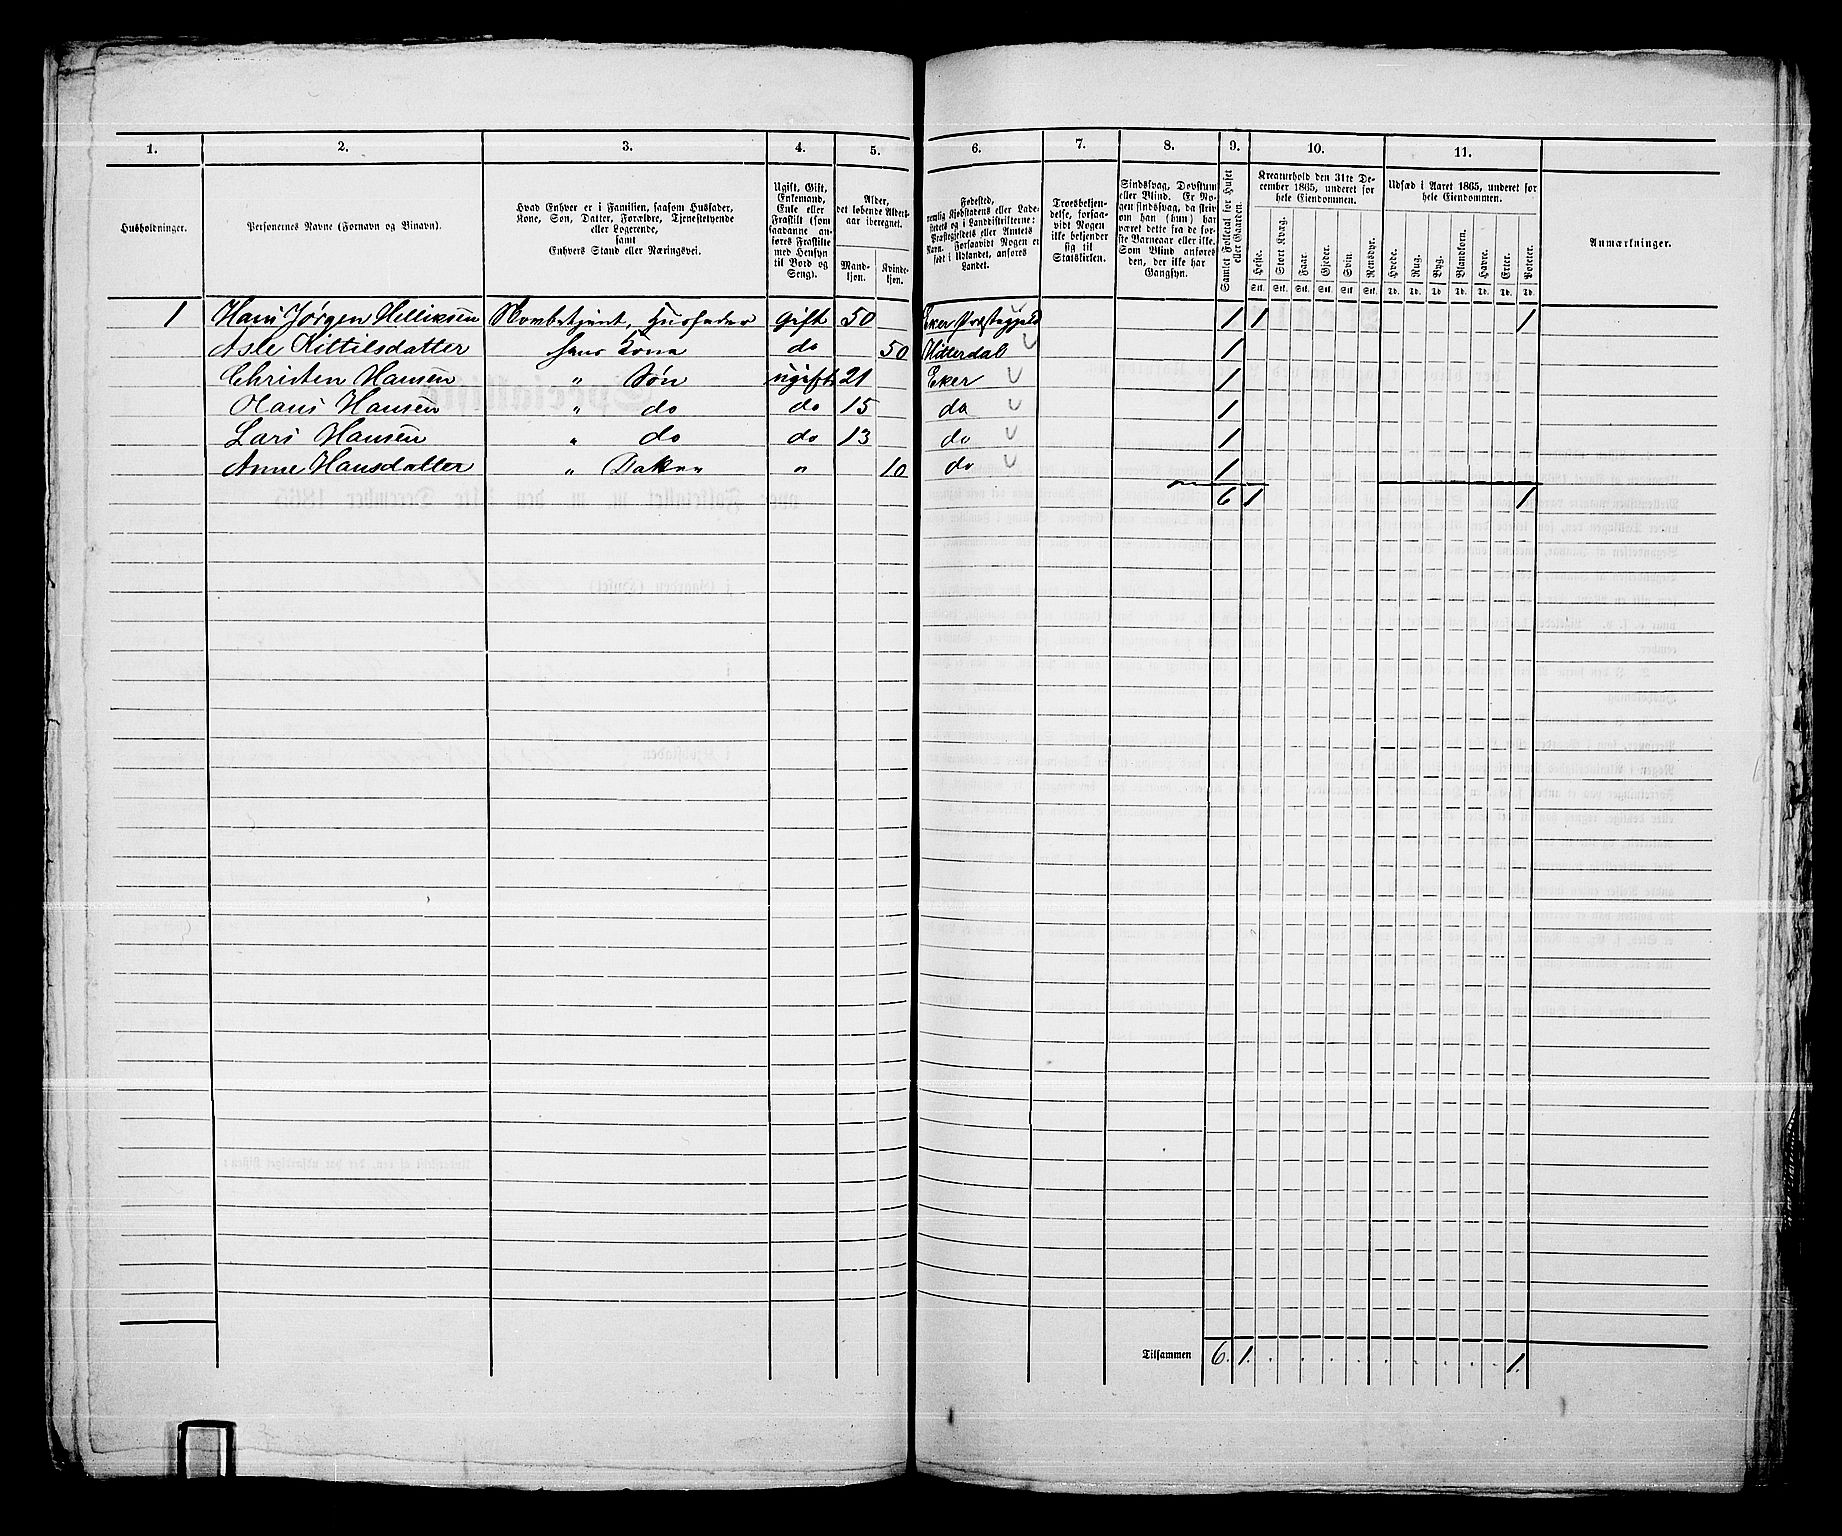 1. 2. 3. 4. 5. 6. 7. 8. 9. 10. 11.
Husholdninger.
Personernes Navne (Fornavn og Binavn).
Hvad Enhver er i Familien, saasom Husfader,
Kone, Søn, Datter, Forældre, Tjenestetyende
eller Logerende,
samt
Enhvers Stand eller Næringsvei.
Ugift, Gift,
Enkemand,
Enke eller
Fraskilt (som
saadanne an-
føres Fraskilte
med Hensyn
til Bord og
Seng).
Alder,
det løbende Alders-
aar iberegnet.
Mand-
kjøn.
Kvinde-
kjøn.
Fødested,
nemlig Kjøbstadens eller Lade-
stedets og i Landdistrikterne:
Præstegjeldets eller Amtets
Navn. Forsaavidt Nogen er
født i Udlandet, anføres
Landet.
Troesbekjen-
delse, forsaa-
vidt Nogen
ikke bekjender
sig til
Statskirken.
Sindssvag, Døvstum
eller Blind. Er No-
gen sindssvag, da skriv
om han (hun) har
været dette fra de før-
ste Barneaar eller ikke.
Som Blind anføres
den, der ikke har
Gangsyn.
Samlet Folketal for Huset
eller Gaarden.
Kreaturhold den 31te De-
cember 1865, underet for
hele Eiendommen.
Heste. Stort Kvæg. Faar. Gjeder. Svin. Rensdyr.
Stk. Stk. Stk. Stk. Stk. Stk.
Udsæd i Aaret 1865, underet for
hele Eiendommen.
Hvede. Rug. Byg. Blandkorn. Havre. Erter. Poteter.
Td. Td. Td. Td. Td. Td. Td.
Anmærkninger.
1 Hans Jørgen Helliksen Husfader gift 50 Eker Præstegjeld 1 1 1
Asle Kittilsdatter hans Kone do 50 Hitterdal 1
Christen Hansen " Søn ugift 21 Eker 1
Olaus Hansen " do do 15 do 1
Lars Hansen " do do 13 do 1
Anne Hansdatter " " 10 do 1
6 1 1
Tilsammen 6. 1. 1.